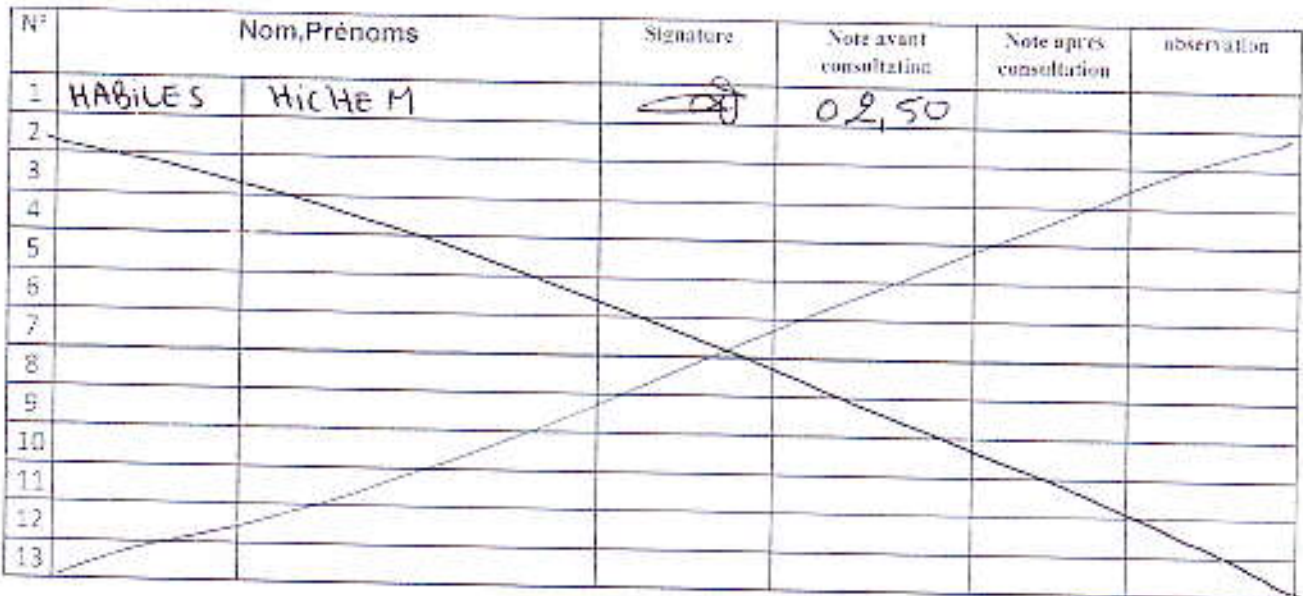 N° Nom,Prénoms Signature Note avant consultation Note après consultation observation
1 HABILES HICHEM 02,50
2
3
4
5
6
7
8
9
10
11
12
13